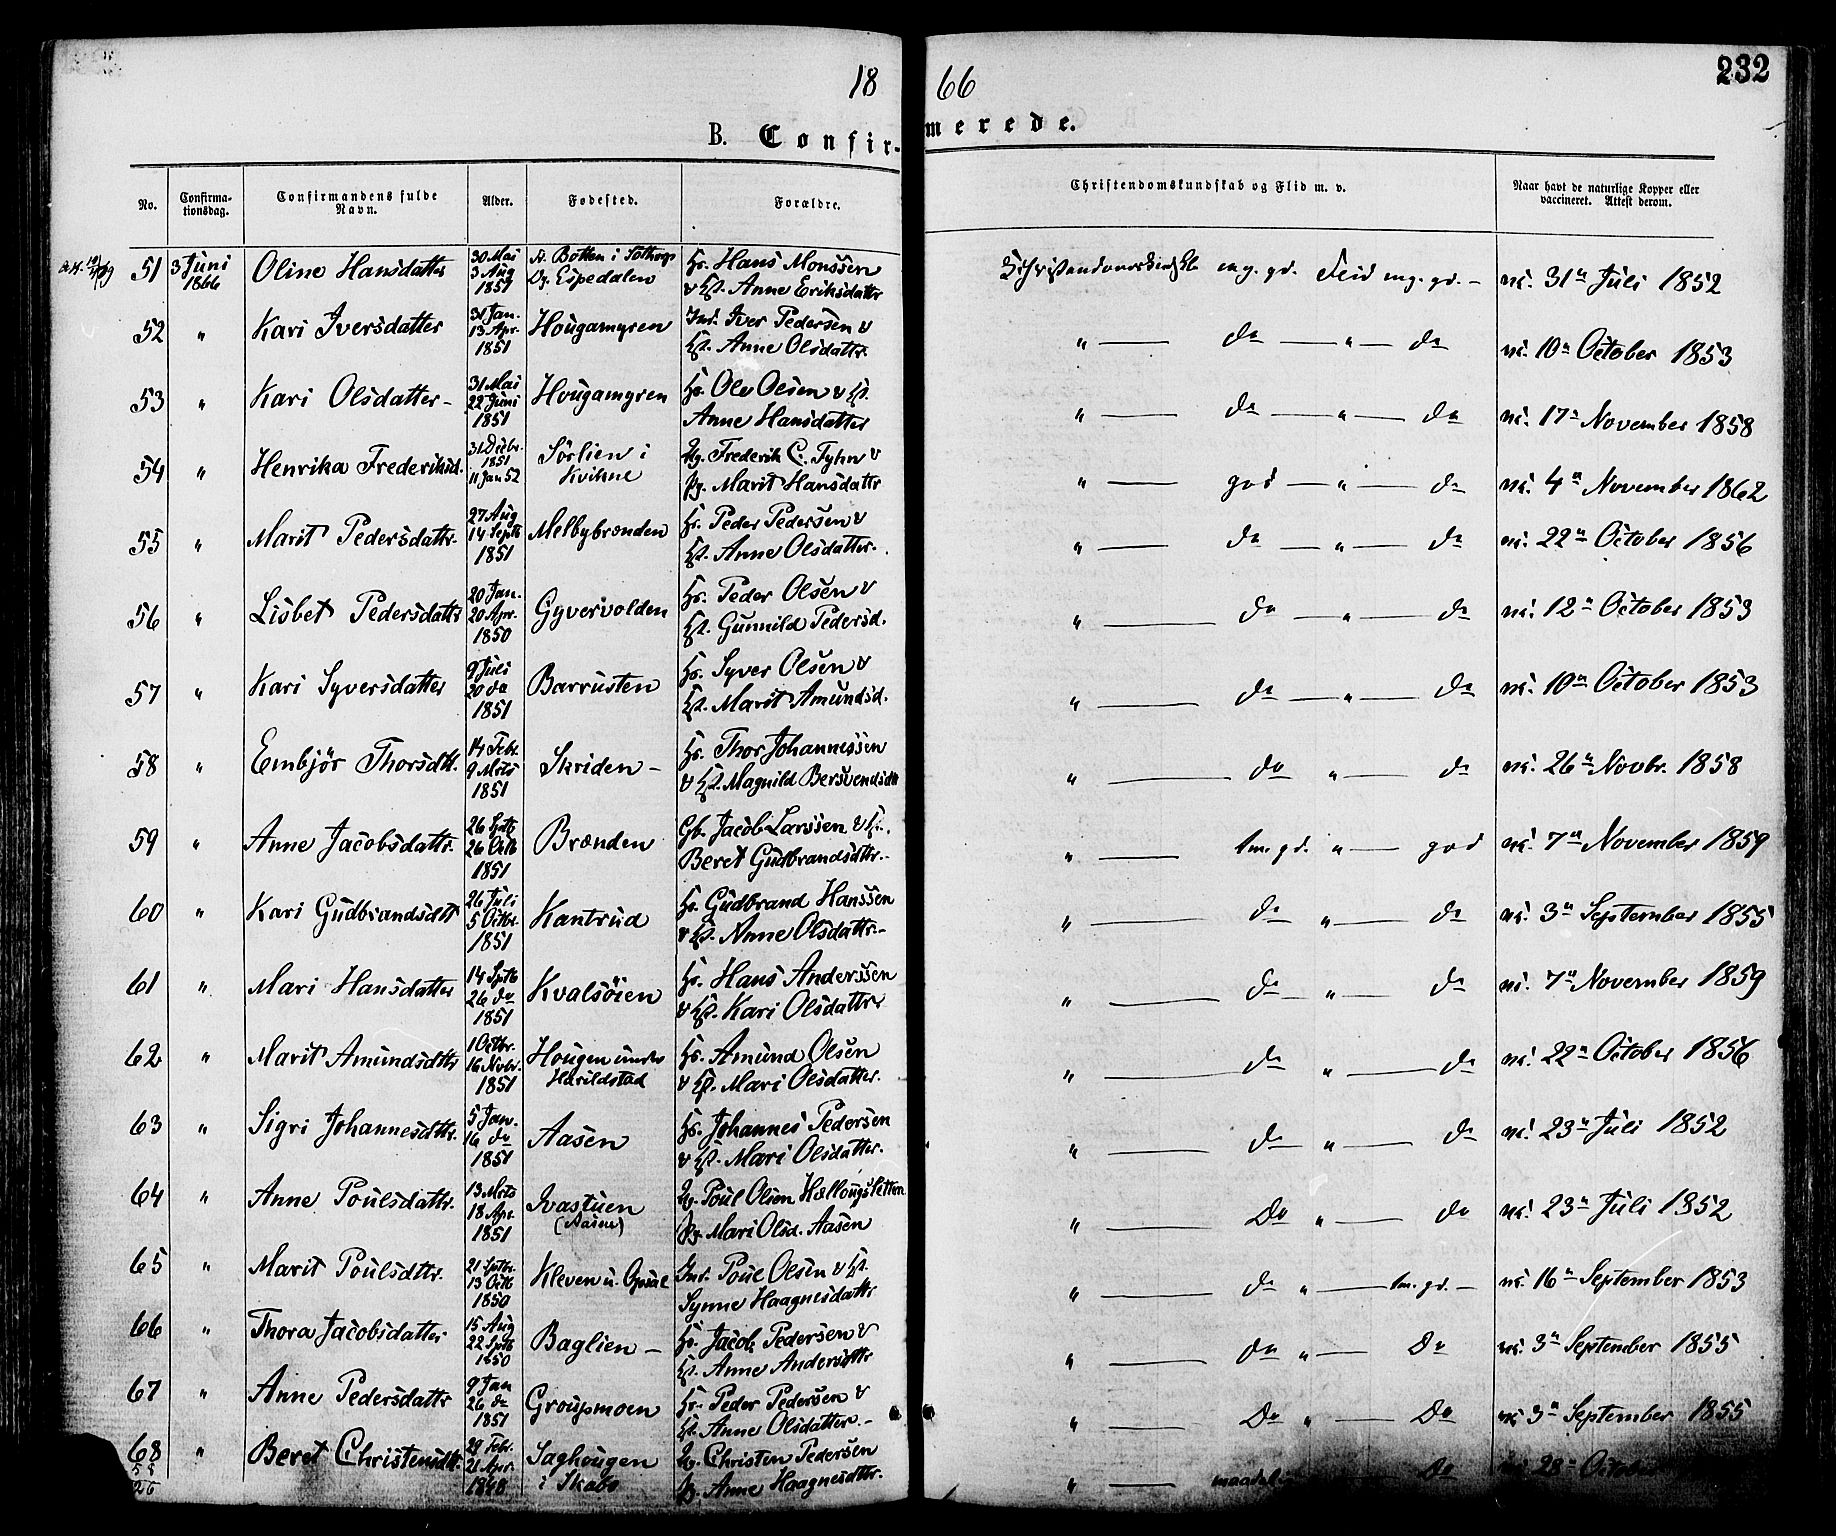 232
18 66
B. Confirmerede.
No. Confirmationsdag. Confirmandens fulde Navn. Alder. Fødested. Forældre. Christendomskundskab og Flid m. v. Naar havt de naturlige Kopper eller vaccineret. Attest derom.
51 3 Juni 1866 Oline Hansdatter 30 Mai 3 Aug 1851 Botten i Solhogs Espedalen Hans Monssen & Anne Eriksdattr mg. gd. Flid mg. gd. – 31te Juli 1852
52 " Kari Iversdatter 31 Jan. 13 Apr. 1851 Hougamyren Ind. Iver Pedersen & Anne Olsdattr. " do " do 10de October 1853
53 " Kari Olsdatter – 31 Mai 22 Juni 1851 Hougamyren Ole Olsen & Anne Hansdatter " do " do 17de November 1858
54 " Henrika Frederiksd. 31 Decbr. 1851 11 Jan 52 Sørlien i Kvikne Frederik C. Fyhn & Marit Hansdattr " god " do 4de November 1862
55 " Marit Pedersdattr. 27 Aug 14 Septb 1851 Melbybrænden Peder Pedersen & Anne Olsdatter. " do " do 22de October 1856
56 " Lisbet Pedersdattr 20 Jan. 20 Apr. 1850 Gyvervolden Peder Olsen & Gunnild Pedersd. " do " do 12te October 1853
57 " Kari Syversdatter 9 Juli 20 do 1851 Barrusten Syver Olsen & Marit Amundsd. " do " do 10de October 1853
58 " Embjør Thorsdtt. 14 Febr. 9 Mrts 1851 Skriden – Thor Johannessen & Magnild Bersvendsdtt " do " do 26de Novbr. 1858
59 " Anne Jacobsdattr. 26 Sptb 26 Octb 1851 Brænden Gb. Jacob Larssen & Beret Gudbrandsdttr. " tm. gd. " god 7de November 1859
60 " Kari Gudbrandsdtt 26 Juli 5 Octbr. 1851 Kantrud Gudbrand Hanssen & Anne Olsdattr. " do " do 3de September 1855
61 " Mari Hansdatter 14 Sptb 26 do 1851 Kvalsöien Hans Anderssen & Kari Olsdattr " do " do 7de November 1859
62 " Marit Amundsdttr 1 Octbr. 16 Novbr. 1851 Hougen under Harildstad Amund Olsen & Mari Olsdatter. " do " do 22de October 1856
63 " Sigri Johannesdttr. 5 Jan. 16 do 1851 Aasen Johannes Pedersen & Mari Olsdatter. " do " do 23de Juli 1852
64 " Anne Poulsdattr. 13 Mrts 18 Apr. 1851 Ivastuen (Aasen) Poul Olsen Hællongsletten Mari Olsd. Aasen " Do " do 23de Juli 1852
65 " Marit Poulsdttr. 21 Sptbr. 13 Octb 1850 Kleven u. Opsal Ind. Poul Olsen & Synne Haagnesdattr " do " tm. gd. – 16de September 1853
66 " Thora Jacobsdatter 15 Aug 22 Sptb 1850 Baglien – Jacob Pedersen & Anne Andersdttr " do " Do 3de September 1855
67 " Anne Pedersdattr 9 Jan 26 do 1851 Groupmoen Peder Pedersen & Anne Olsdatter. – " Do " Do 3de September 1855
68 " Beret Christensdtt. 29 Febr. 21 Apr. 1848 Saghougen i Skabo Christen Pedersen Anne Haagnesdttr. " maadel. Do 28de October